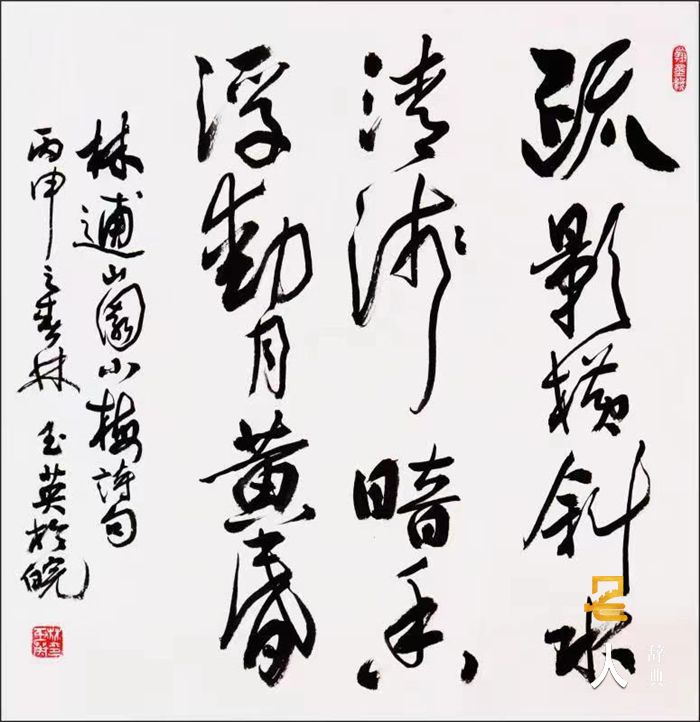 疏影横斜水
清淺暗香
浮動月黄昏
林逋山園小梅詩句
丙申之春林玉英於皖
名人
辞典